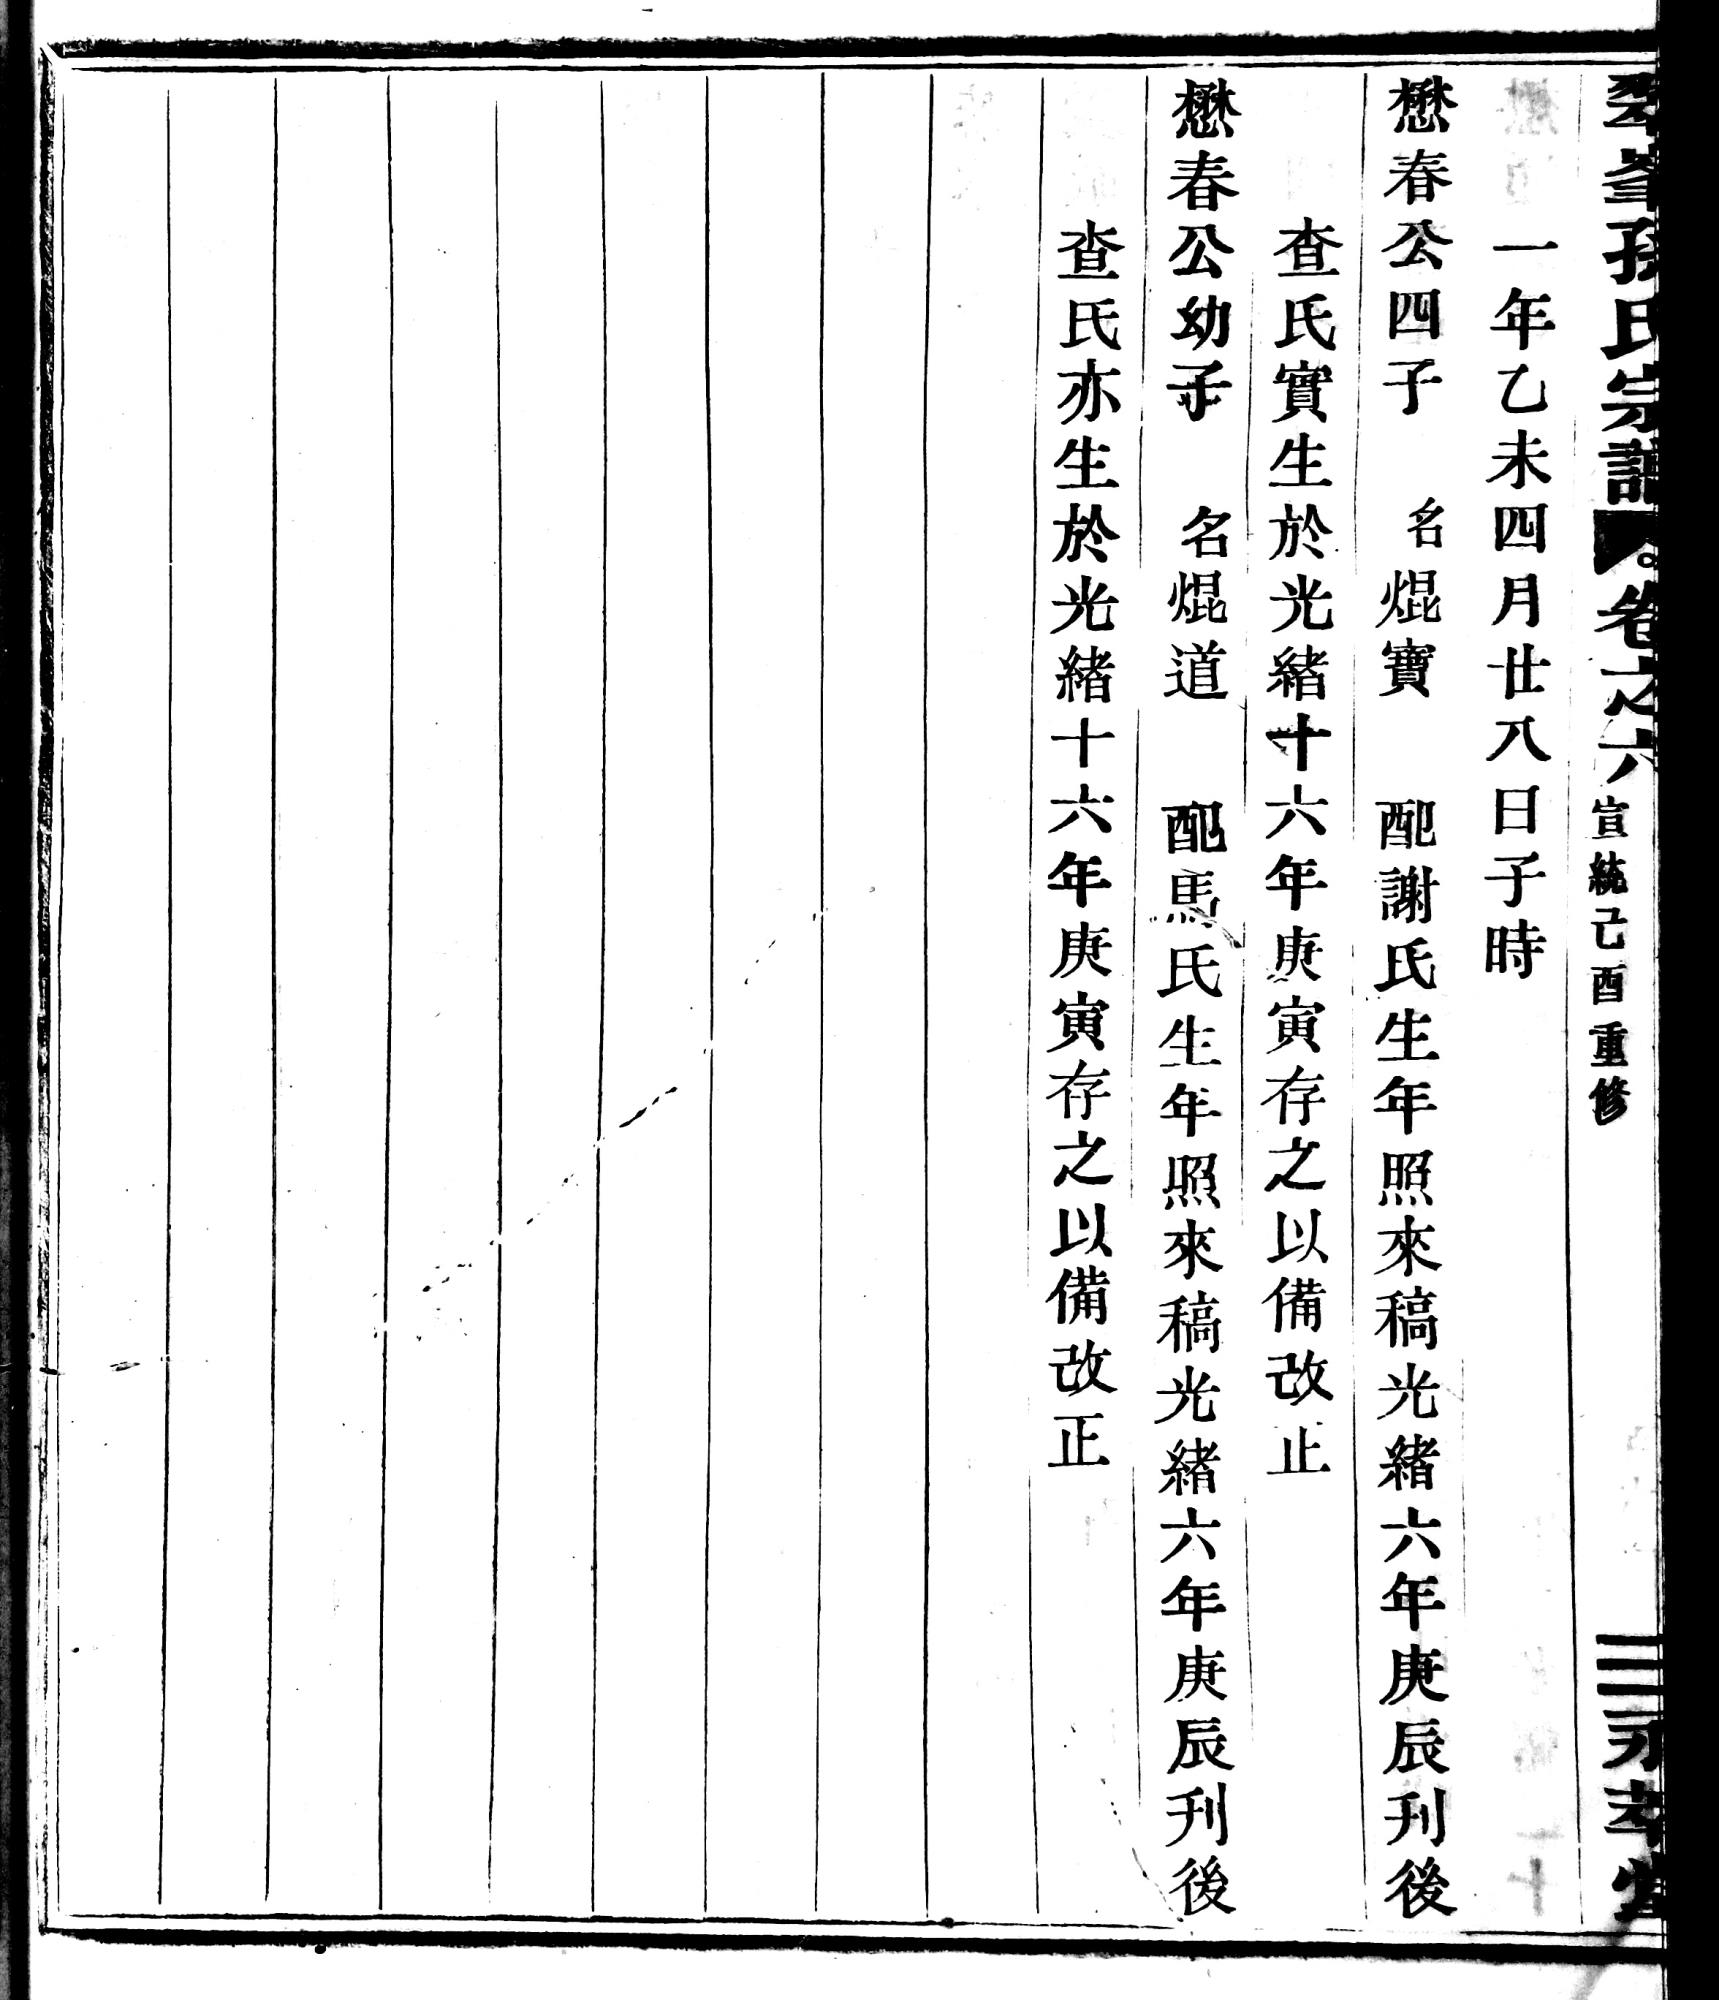 峯孫氏宗譜 卷之六 宣統己酉重修 永堂
一年乙未四月廿八日子時
懋春公四子 名焜寶 配謝氏生年照來稿光緒六年庚辰刊後
查氏實生於光緒十六年庚寅存之以備改正
懋春公幼子 名焜道 配馬氏生年照來稿光緒六年庚辰刊後
查氏亦生於光緒十六年庚寅存之以備改正